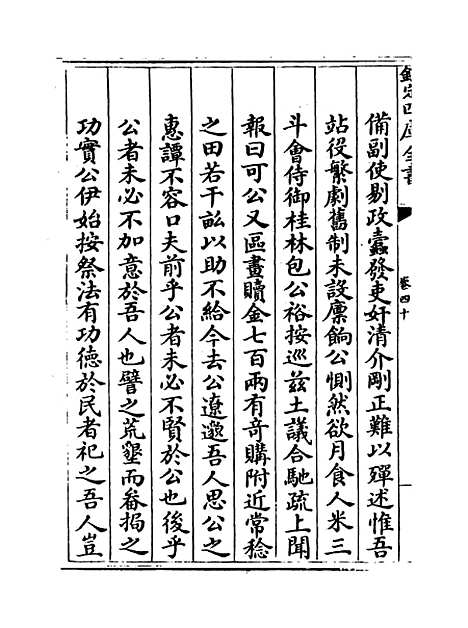 欽定四庫全書
卷四十
備副使剔政蠹發吏奸清介剛正難以殫述惟吾
站役繁劇舊制未設廩餉公惻然欲月食人米三
斗會侍御桂林包公裕按巡兹土議合馳疏上聞
報曰可公又區畫贖金七百兩有竒購附近常稔
之田若干畝以助不給今去公遼邈吾人思公之
惠譚不容口夫前乎公者未必不賢於公也後乎
公者未必不加意於吾人也譬之荒墾而畬揭之
功實公伊始按祭法有功德於民者祀之吾人豈